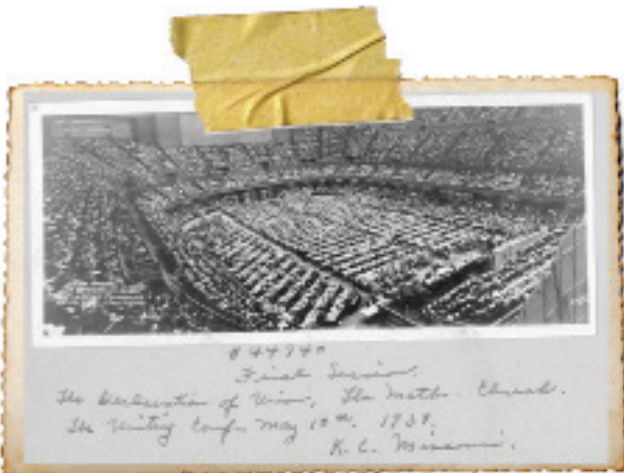 Final Session.
The Declaration of Union, The Meth. Church.
The Uniting Conf. May 10th. 1939.
K. C. Missouri.